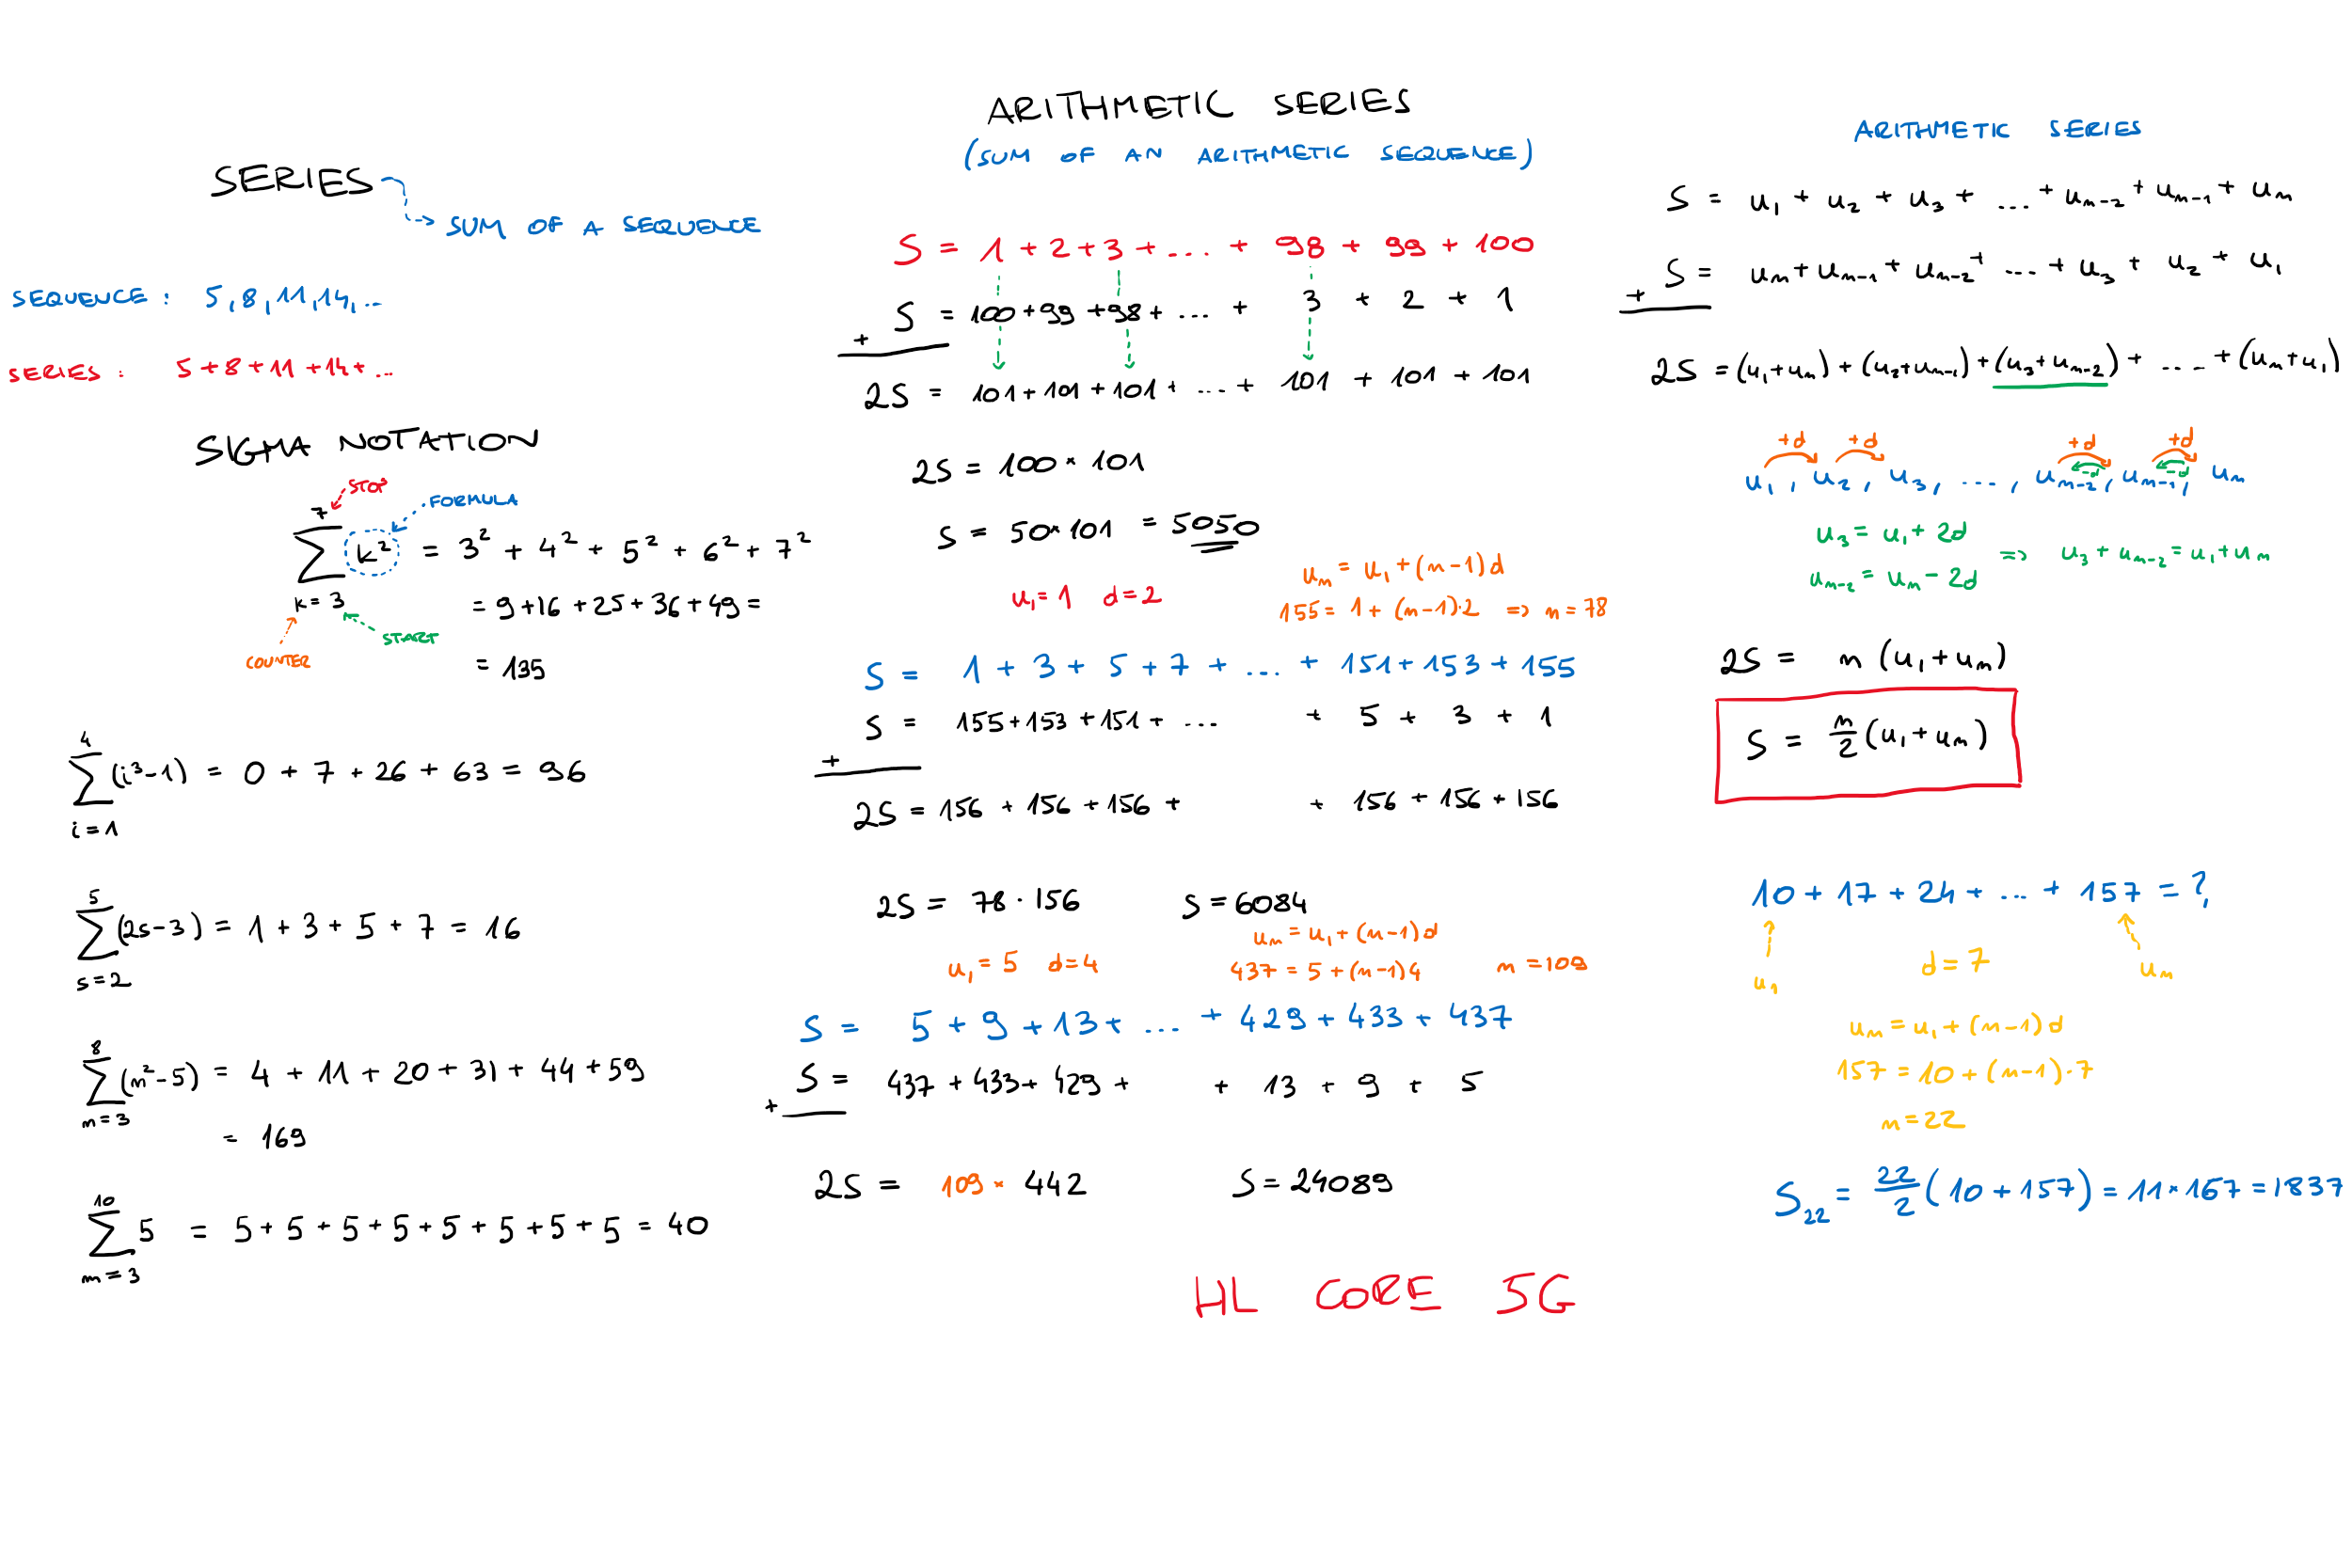 SERIES
SUM OF A SEQUENCE
SEQUENCE : 5, 8, 11, 14, ...
SERIES : 5 + 8 + 11 + 14 + ...
SIGMA NOTATION
STOP
FORMULA
7
∑ k² = 3² + 4² + 5² + 6² + 7²
k = 3
= 9 + 16 + 25 + 36 + 49 =
START
COUNTER
= 135
4
∑ (i³-1) = 0 + 7 + 26 + 63 = 96
i = 1
5
∑ (2s-3) = 1 + 3 + 5 + 7 = 16
s = 2
8
∑ (n²-5) = 4 + 11 + 20 + 31 + 44 + 59
n = 3
= 169
10
∑ 5 = 5 + 5 + 5 + 5 + 5 + 5 + 5 + 5 = 40
m = 3
ARITHMETIC SERIES
(SUM OF AN ARITHMETIC SEQUENCE)
S = 1 + 2 + 3 + ... + 98 + 99 + 100
S = 100 + 99 + 98 + ... + 3 + 2 + 1
+
2S = 101 + 101 + 101 + ... + 101 + 101 + 101
2S = 100 × 101
S = 50 × 101 = 5050
u₁ = 1 d = 2
uₙ = u₁ + (n-1)d
155 = 1 + (n-1)·2 => n = 78
S = 1 + 3 + 5 + 7 + ... + 151 + 153 + 155
S = 155 + 153 + 151 + ... + 5 + 3 + 1
+
2S = 156 + 156 + 156 + + 156 + 156 + 156
2S = 78 · 156 S = 6084
u₁ = 5 d = 4
uₙ = u₁ + (n-1)d
437 = 5 + (n-1)4 n = 109
S = 5 + 9 + 13 + ... + 429 + 433 + 437
S = 437 + 433 + 429 + + 13 + 9 + 5
+
2S = 109 × 442 S = 24089
HL CORE 5G
ARITHMETIC SERIES
S = u₁ + u₂ + u₃ + ... + uₙ₋₂ + uₙ₋₁ + uₙ
S = uₙ + uₙ₋₁ + uₙ₋₂ + ... + u₃ + u₂ + u₁
+
2S = (u₁+uₙ) + (u₂+uₙ₋₁) + (u₃+uₙ₋₂) + .... + (uₙ+u₁)
+d +d +d +d
-d -d
u₁, u₂, u₃, ..., uₙ₋₂, uₙ₋₁, uₙ
u₃ = u₁ + 2d
=> u₃ + uₙ₋₂ = u₁ + uₙ
uₙ₋₂ = uₙ - 2d
2S = n (u₁+uₙ)
S = n/2 (u₁+uₙ)
10 + 17 + 24 + ... + 157 = ?
u₁ d = 7 uₙ
uₙ = u₁ + (n-1)d
157 = 10 + (n-1)·7
n = 22
S₂₂ = 22/2 (10 + 157) = 11 × 167 = 1837